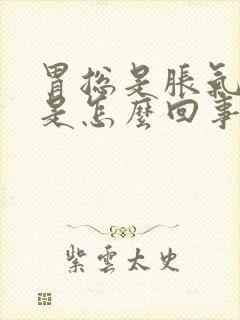 胃总是胀氣
是怎麼回事
紫雲太史